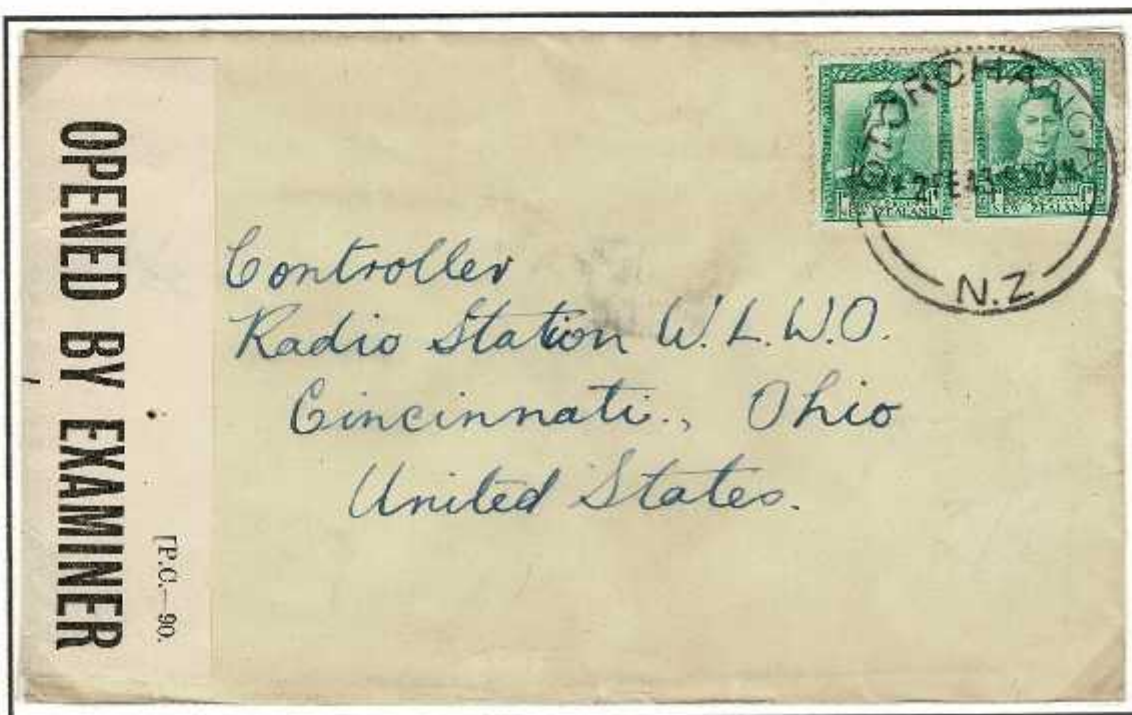 OPENED BY EXAMINER
[P.C.—90.
OTOROHANGA
N.Z
NEW ZEALAND
NEW ZEALAND
Controller
Radio Station W.L.W.O.
Cincinnati., Ohio
United States.